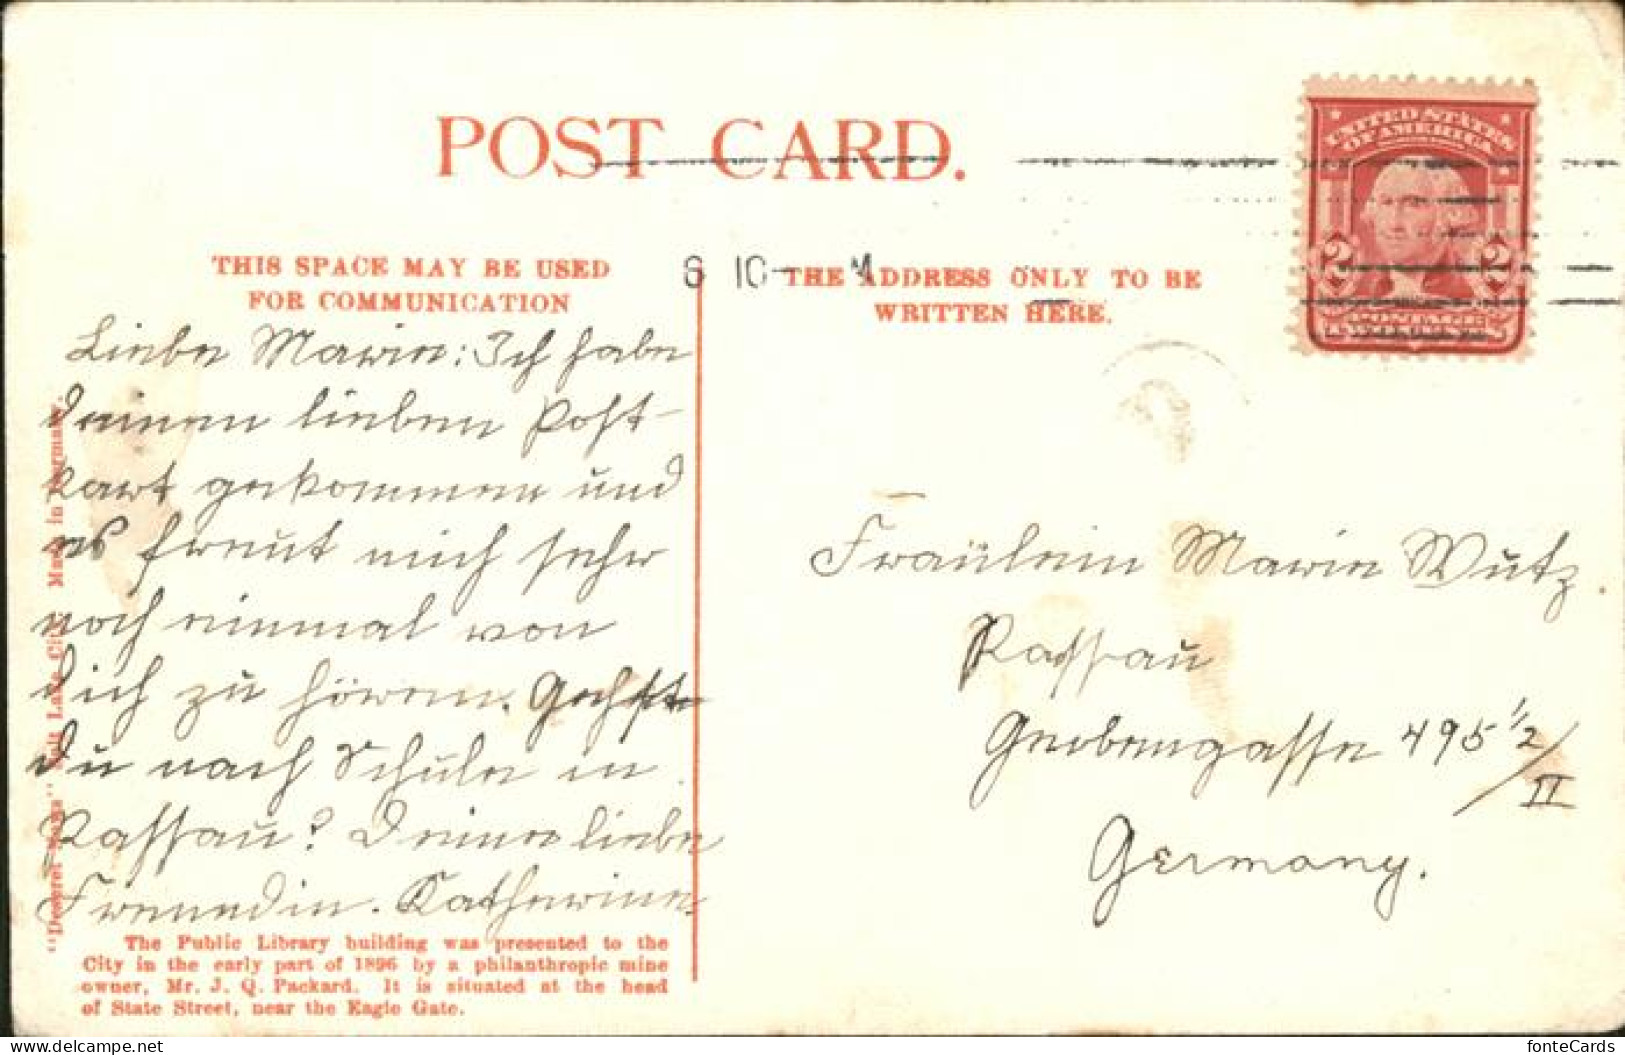 POST CARD.
THIS SPACE MAY BE USED
FOR COMMUNICATION
6 10
THE ADDRESS ONLY TO BE
WRITTEN HERE.
UNITED STATES
OF AMERICA
2 2
Liebe Marie: Ich habe
deinen lieben Post-
kart gekommen und
es freut mich sehr
noch einmal von
dich zu hören. Gehst
du nach Schule in
Passau? Deine liebe
Freundin. Katherine.
Fräulein Marie Wutz.
Passau
Grabengasse 495 1/2/II
Germany.
"Deseret News" Salt Lake City. Made in Germany.
The Public Library building was presented to the
City in the early part of 1896 by a philanthropic mine
owner, Mr. J. Q. Packard. It is situated at the head
of State Street, near the Eagle Gate.
www.delcampe.net
fonteCards